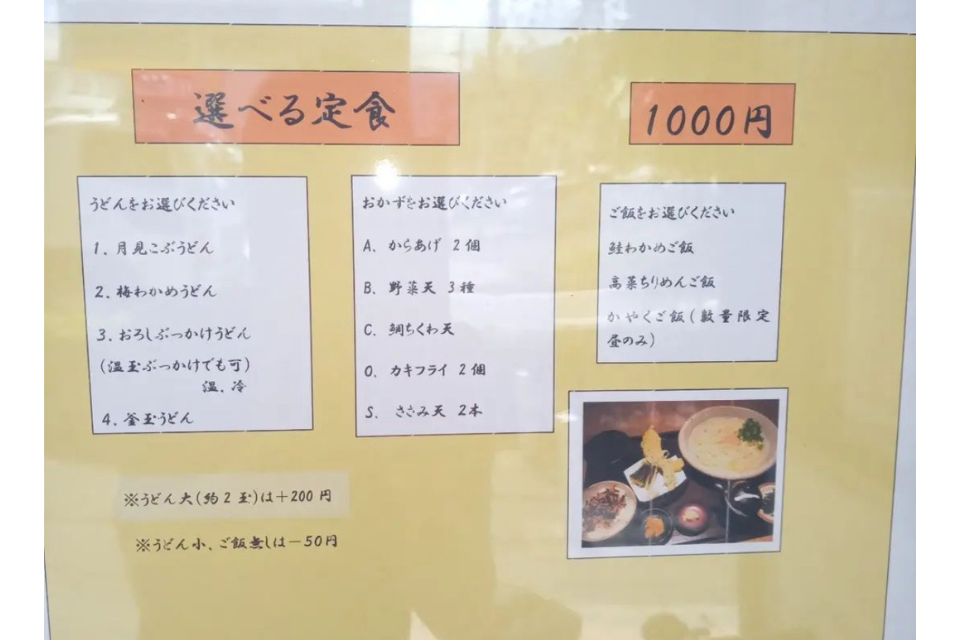 選べる定食
1000円
うどんをお選びください
1. 月見こぶうどん
2. 梅わかめうどん
3. おろしぶっかけうどん
(温玉ぶっかけでも可)
温、冷
4. 釜玉うどん
おかずをお選びください
A. からあげ 2個
B. 野菜天 3種
C. 鯛ちくわ天
O. カキフライ 2個
S. ささみ天 2本
ご飯をお選びください
鮭わかめご飯
高菜ちりめんご飯
かやくご飯(数量限定
昼のみ)
※うどん大(約2玉)は+200円
※うどん小、ご飯無しは-50円